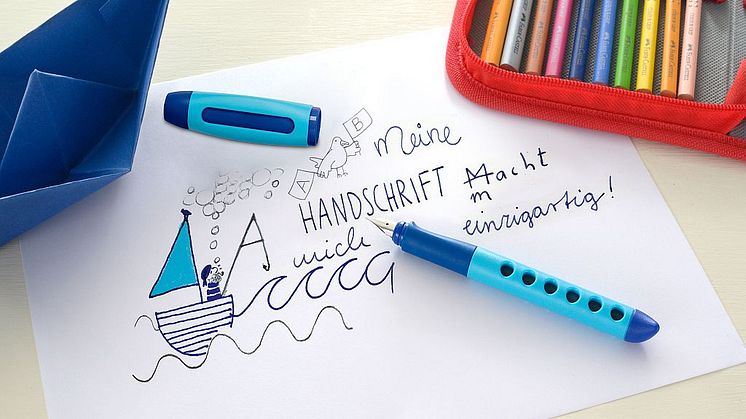 B Meine
A HANDSCHRIFT Macht
m
A mich einzigartig!